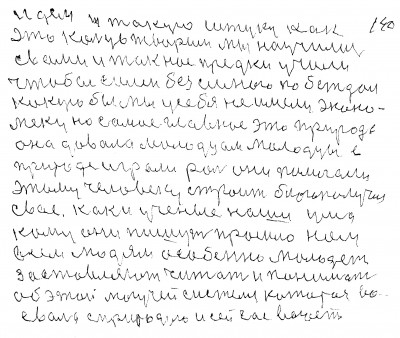 идем и такую штуку как 140
это ка творим мы научили
сами и так нас предки учили
чтобы если без сильного победам
какую бы мы у себя не имели эконо-
мику но самое главное это природа
она давала молодцам молодым в
природе играли рол они помагали
этому человеку строит благополучия
свае, как и ученые наши ума
кому они пишут прошло нам
всем людям особенно молодеж
заставляют читат и понимат
об этой могучей системе каторая во-
евала с природаю и сей час воюет